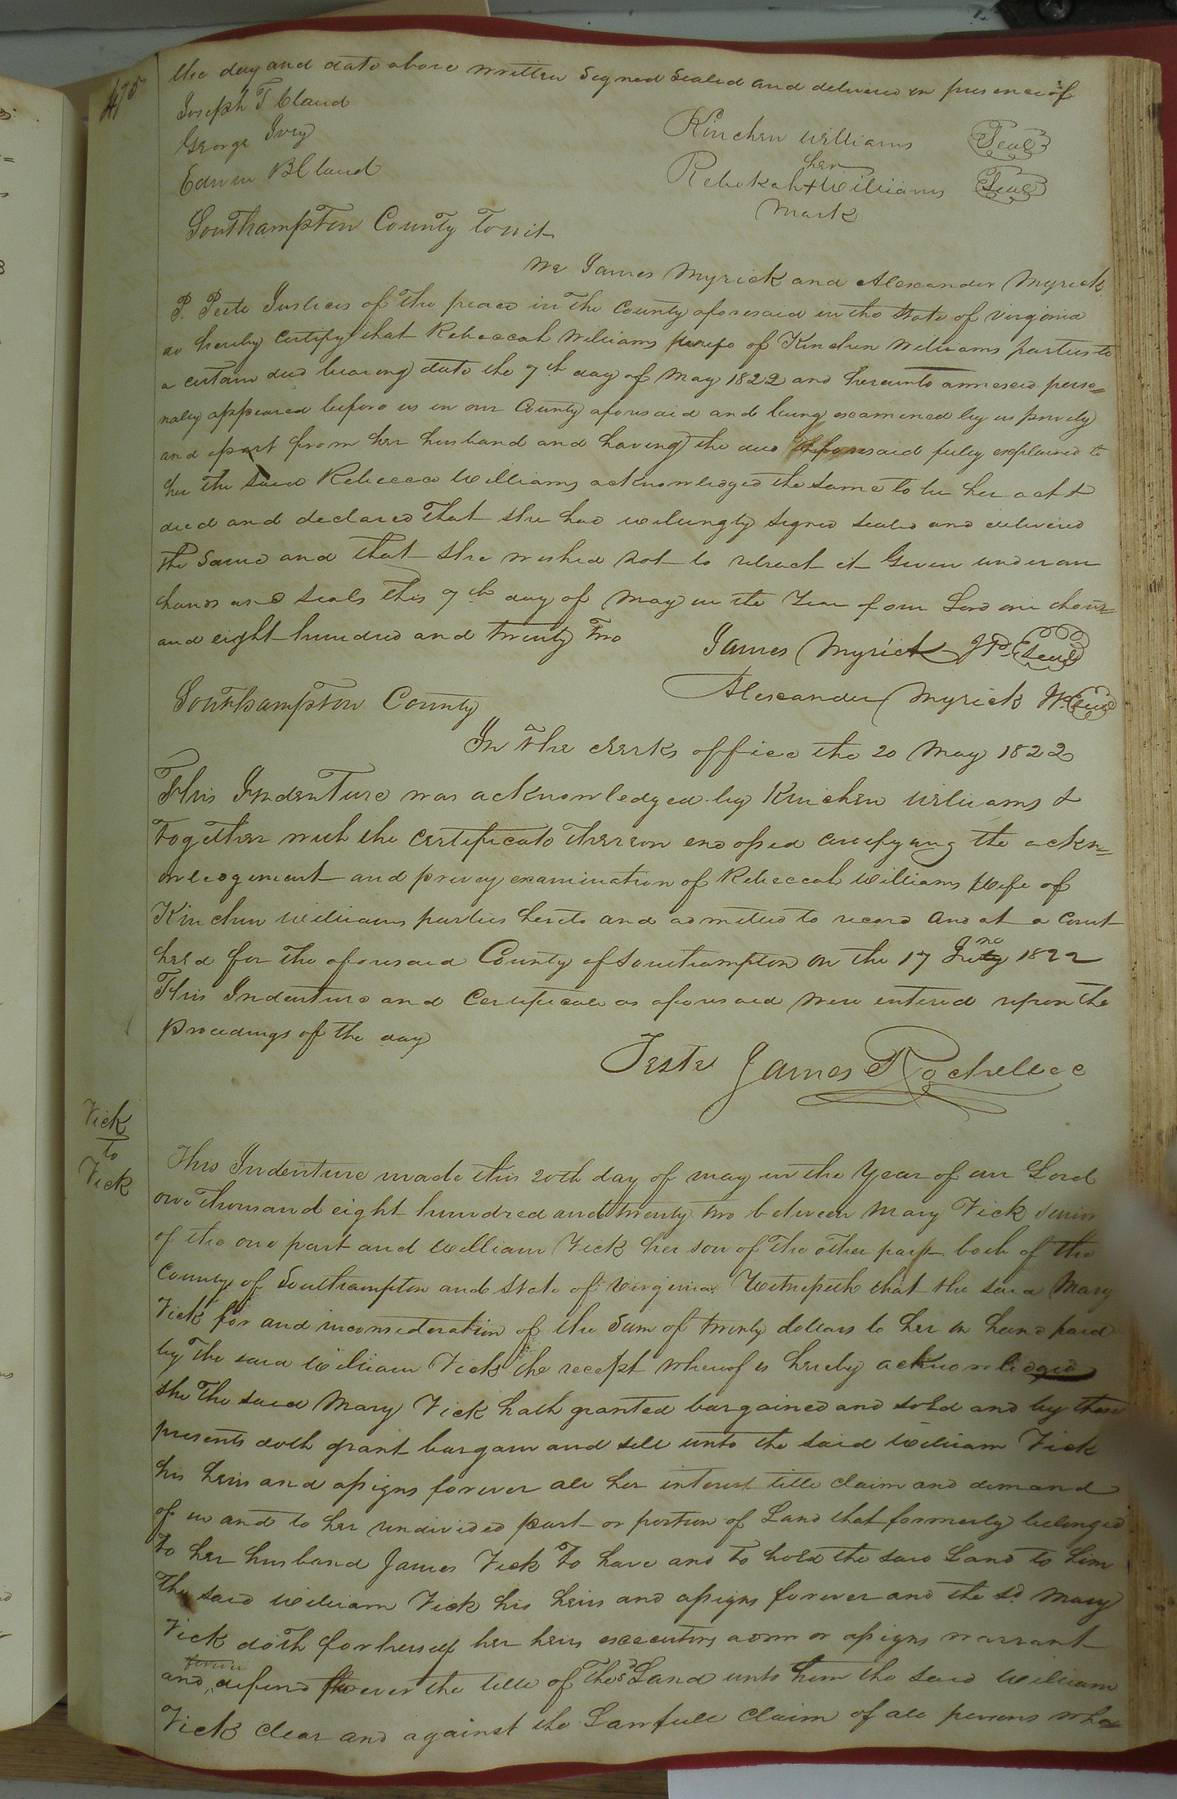 475
the day and date above written Signed Sealed and delivered in presence of
Joseph T Claud
George Ivey
Edwin B Claud
Kinchen Williams Seal
her
Rebekah + Williams Seal
mark
Southampton County Towit
We James Myrick and Alexander Myrick
P. Peete Justices of the peace in the County aforesaid in the State of Virginia
do hereby Certify that Rebeccah Williams wife of Kinchen Williams parties to
a certain deed bearing date the 7th day of May 1822 and hereunto annexed perso=
nally appeared before us in our County aforesaid and being examined by us privily
and apart from her husband and having the deed aforesaid fully explained to
her the said Rebecca Williams acknowledged the same to be her act &
deed and declared that she had willingly signed sealed and delivered
the same and that she wished not to retract it Given under our
hands and seals this 7th day of May in the Year of our Lord one thous=
and eight hundred and twenty two
James Myrick JP Seal
Alexander Myrick JP Seal
Southampton County
In the clerks office the 20 May 1822
This Indenture was acknowledged by Kinchen Williams &
together with the certificate thereon endorsed certifying the ackn=
owledgement and privy examination of Rebeccah Williams Wife of
Kinchen Williams parties hereto and admitted to record And at a Court
held for the aforesaid County of Southampton on the 17 June 1822
This Indenture and Certificate as aforesaid were entered upon the
proceedings of the day
Teste James Rochelle c c
Vick
to
Vick
This Indenture made this 20th day of may in the Year of our Lord
one thousand eight hundred and twenty two between Mary Vick Senior
of the one part and William Vick her son of the other part both of the
County of Southampton and State of Virginia Witnesseth that the said Mary
Vick for and inconsideration of the Sum of twenty dollars to her in hand paid
by the said William Vick the receipt whereof is hereby acknowledged
she the said Mary Vick hath granted bargained and sold and by these
presents doth grant bargain and sell unto the said William Vick
his heirs and assigns forever all her interest title claim and demand
of in and to her undivided part or portion of Land that formerly belonged
to her husband James Vick To have and to hold the said Land to him
The said William Vick his heirs and assigns forever and the sd. Mary
Vick doth for herself her heirs executors admr or assigns warrant
and defend forever the title of The sd Land unto him the said William
Vick clear and against the Lawfull Claim of all persons whom